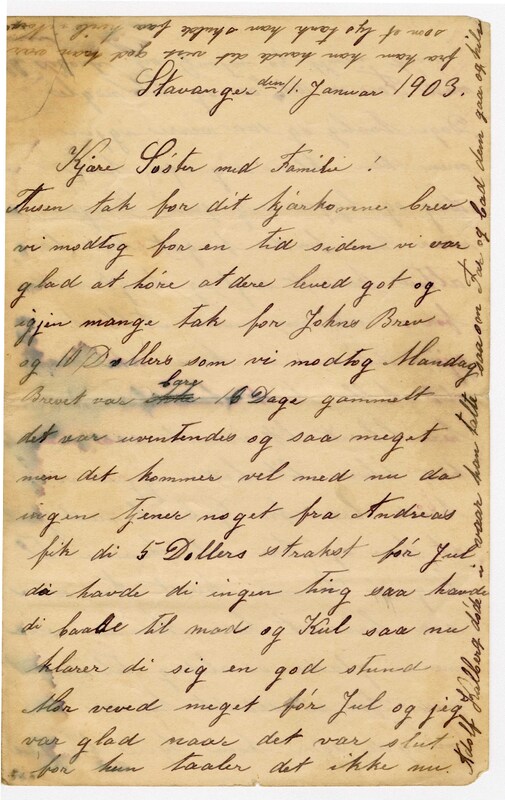 Stavanger den/1. Januar 1903.
Kjære Søster med Familie!
Tusen tak for dit kjærkomne brev
vi modtog for en tid siden vi var
glad at høre at dere leved got og
igjen mange tak for Johns Brev
og 10 Dollers som vi modtog Mandag
Brevet var bare 16 Dage gammelt
det var uventendes og saa meget
men det kommer vel med nu da
ingen tjener noget fra Andreas
fik di 5 Dollers strakst før Jul
da havde di ingen ting saa havde
di baade til mad og Kul saa nu
klarer di sig en god stund
Mor veved meget før Jul og jeg
var glad naar det var slut
for hun taaler det ikke nu.
Adolf døde i vaar han talte saa om Far og bad dem gaa og hils
fra ham han havde det vist godt han var
som et lys tænk han skulde faa